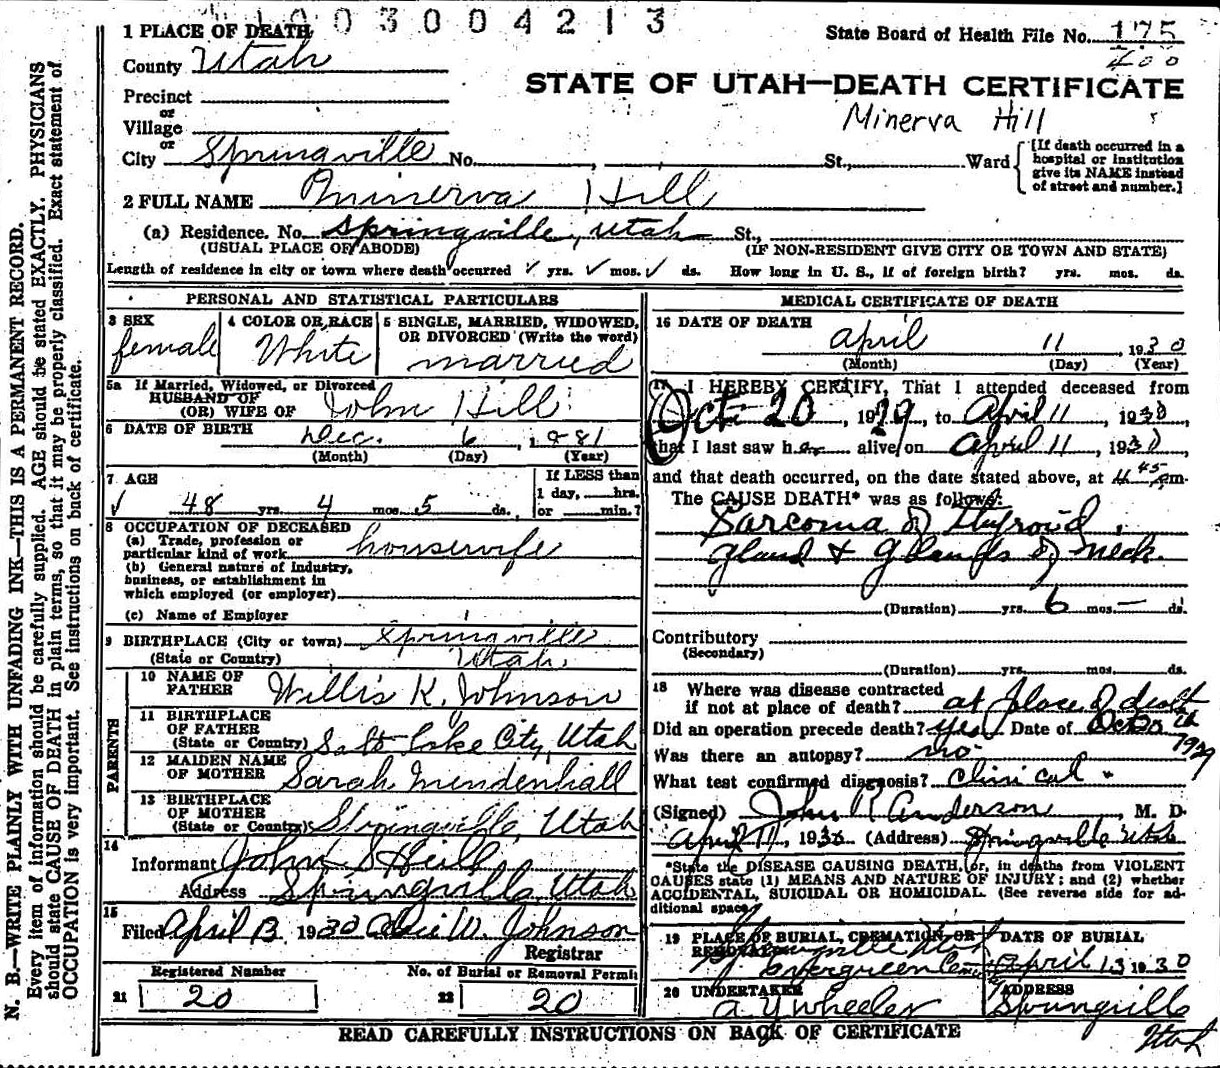 003004213
1 PLACE OF DEATH
State Board of Health File No. 175
400
County Utah
STATE OF UTAH—DEATH CERTIFICATE
Precinct
or
Village
Minerva Hill
or
City Springville No. , St., Ward
[If death occurred in a hospital or institution give its NAME instead of street and number.]
2 FULL NAME Minerva Hill
(a) Residence. No. Springville, Utah St.,
(USUAL PLACE OF ABODE) (IF NON-RESIDENT GIVE CITY OR TOWN AND STATE)
Length of residence in city or town where death occurred ✓ yrs. ✓ mos. ✓ ds. How long in U. S., if of foreign birth? yrs. mos. ds.
PERSONAL AND STATISTICAL PARTICULARS
3 SEX
female
4 COLOR OR RACE
White
5 SINGLE, MARRIED, WIDOWED, OR DIVORCED (Write the word)
married
5a If Married, Widowed, or Divorced
HUSBAND OF
(OR) WIFE OF John Hill
6 DATE OF BIRTH Dec. 6, 1881
(Month) (Day) (Year)
7 AGE
✓ 48 yrs. 4 mos. 5 ds.
If LESS than
1 day, hrs.
or min.?
8 OCCUPATION OF DECEASED
(a) Trade, profession or
particular kind of work housewife
(b) General nature of industry,
business, or establishment in
which employed (or employer)
(c) Name of Employer
9 BIRTHPLACE (City or town) Springville
(State or Country) Utah.
PARENTS
10 NAME OF
FATHER Willis K. Johnson
11 BIRTHPLACE
OF FATHER
(State or Country) Salt Lake City, Utah
12 MAIDEN NAME
OF MOTHER Sarah Mendenhall
13 BIRTHPLACE
OF MOTHER
(State or Country) Springville, Utah
14
Informant John S Hill
Address Springville, Utah
15
Filed April 13 1930 W. Johnson
Registrar
Registered Number
21 20
No. of Burial or Removal Permit
22 20
MEDICAL CERTIFICATE OF DEATH
16 DATE OF DEATH
April 11, 1930
(Month) (Day) (Year)
17 I HEREBY CERTIFY, That I attended deceased from
Oct 20, 1929, to April 11, 1930
that I last saw her alive on April 11, 1930
and that death occurred, on the date stated above, at 4 45 m.
The CAUSE DEATH* was as follows:
Sarcoma of Thyroid
gland & glands of neck.
(Duration) yrs. 6 mos. — ds.
Contributory
(Secondary)
(Duration) yrs. mos. ds.
18 Where was disease contracted
if not at place of death? at place of death
Did an operation precede death? yes Date of Oct 20 th
1929
Was there an autopsy? no
What test confirmed diagnosis? clinical
(Signed) John R Anderson, M. D.
April 11, 1930 (Address) Springville Utah
*State the DISEASE CAUSING DEATH, or, in deaths from VIOLENT
CAUSES state (1) MEANS AND NATURE OF INJURY; and (2) whether
ACCIDENTAL, SUICIDAL OR HOMICIDAL. (See reverse side for ad-
ditional space
19 PLACE OF BURIAL, CREMATION, OR
REMOVAL Springville
Evergreen Cem
DATE OF BURIAL
April 13 1930
20 UNDERTAKER
A Y Wheeler
ADDRESS
Springville
Utah
READ CAREFULLY INSTRUCTIONS ON BACK OF CERTIFICATE
N. B.—WRITE PLAINLY WITH UNFADING INK—THIS IS A PERMANENT RECORD.
Every item of information should be carefully supplied. AGE should be stated EXACTLY. PHYSICIANS
should state CAUSE OF DEATH in plain terms, so that it may be properly classified. Exact statement of
OCCUPATION is very important. See instructions on back of certificate.